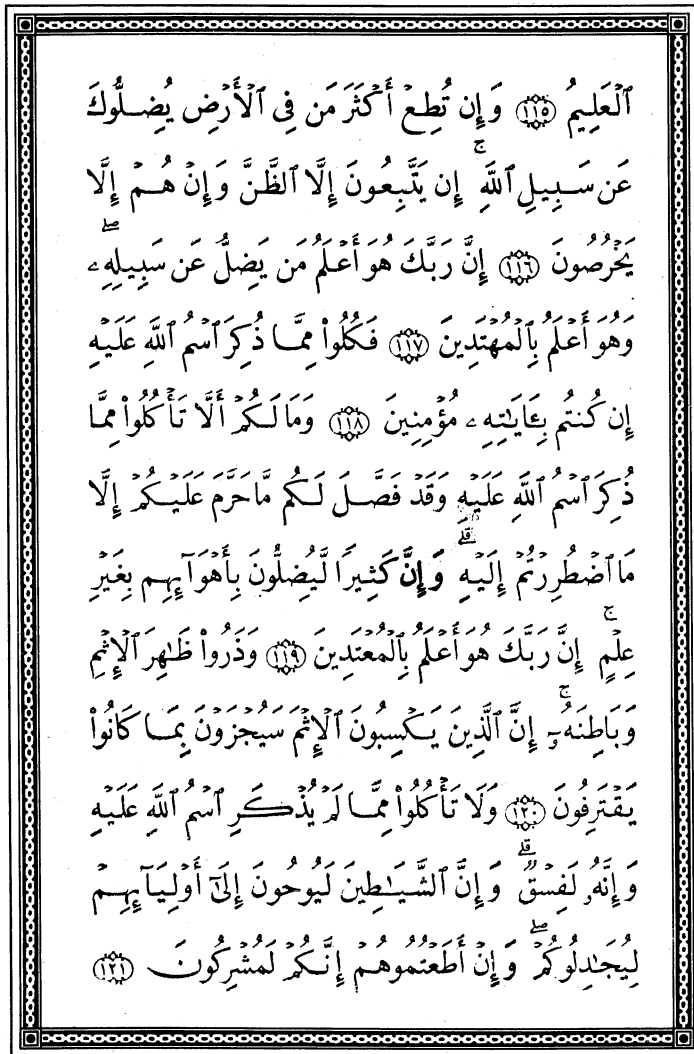 ٱلۡعَلِيمُ ١١٥ وَإِن تُطِعۡ أَكۡثَرَ مَن فِي ٱلۡأَرۡضِ يُضِلُّوكَ
عَن سَبِيلِ ٱللَّهِۚ إِن يَتَّبِعُونَ إِلَّا ٱلظَّنَّ وَإِنۡ هُمۡ إِلَّا
يَخۡرُصُونَ ١١٦ إِنَّ رَبَّكَ هُوَ أَعۡلَمُ مَن يَضِلُّ عَن سَبِيلِهِۦۖ
وَهُوَ أَعۡلَمُ بِٱلۡمُهۡتَدِينَ ١١٧ فَكُلُواْ مِمَّا ذُكِرَ ٱسۡمُ ٱللَّهِ عَلَيۡهِ
إِن كُنتُم بِـَٔايَٰتِهِۦ مُؤۡمِنِينَ ١١٨ وَمَا لَكُمۡ أَلَّا تَأۡكُلُواْ مِمَّا
ذُكِرَ ٱسۡمُ ٱللَّهِ عَلَيۡهِ وَقَدۡ فَصَّلَ لَكُم مَّا حَرَّمَ عَلَيۡكُمۡ إِلَّا
مَا ٱضۡطُرِرۡتُمۡ إِلَيۡهِۗ وَإِنَّ كَثِيرٗا لَّيُضِلُّونَ بِأَهۡوَآئِهِم بِغَيۡرِ
عِلۡمٍۚ إِنَّ رَبَّكَ هُوَ أَعۡلَمُ بِٱلۡمُعۡتَدِينَ ١١٩ وَذَرُواْ ظَٰهِرَ ٱلۡإِثۡمِ
وَبَاطِنَهُۥٓۚ إِنَّ ٱلَّذِينَ يَكۡسِبُونَ ٱلۡإِثۡمَ سَيُجۡزَوۡنَ بِمَا كَانُواْ
يَقۡتَرِفُونَ ١٢٠ وَلَا تَأۡكُلُواْ مِمَّا لَمۡ يُذۡكَرِ ٱسۡمُ ٱللَّهِ عَلَيۡهِ
وَإِنَّهُۥ لَفِسۡقٞۗ وَإِنَّ ٱلشَّيَٰطِينَ لَيُوحُونَ إِلَىٰٓ أَوۡلِيَآئِهِمۡ
لِيُجَٰدِلُوكُمۡۖ وَإِنۡ أَطَعۡتُمُوهُمۡ إِنَّكُمۡ لَمُشۡرِكُونَ ١٢١